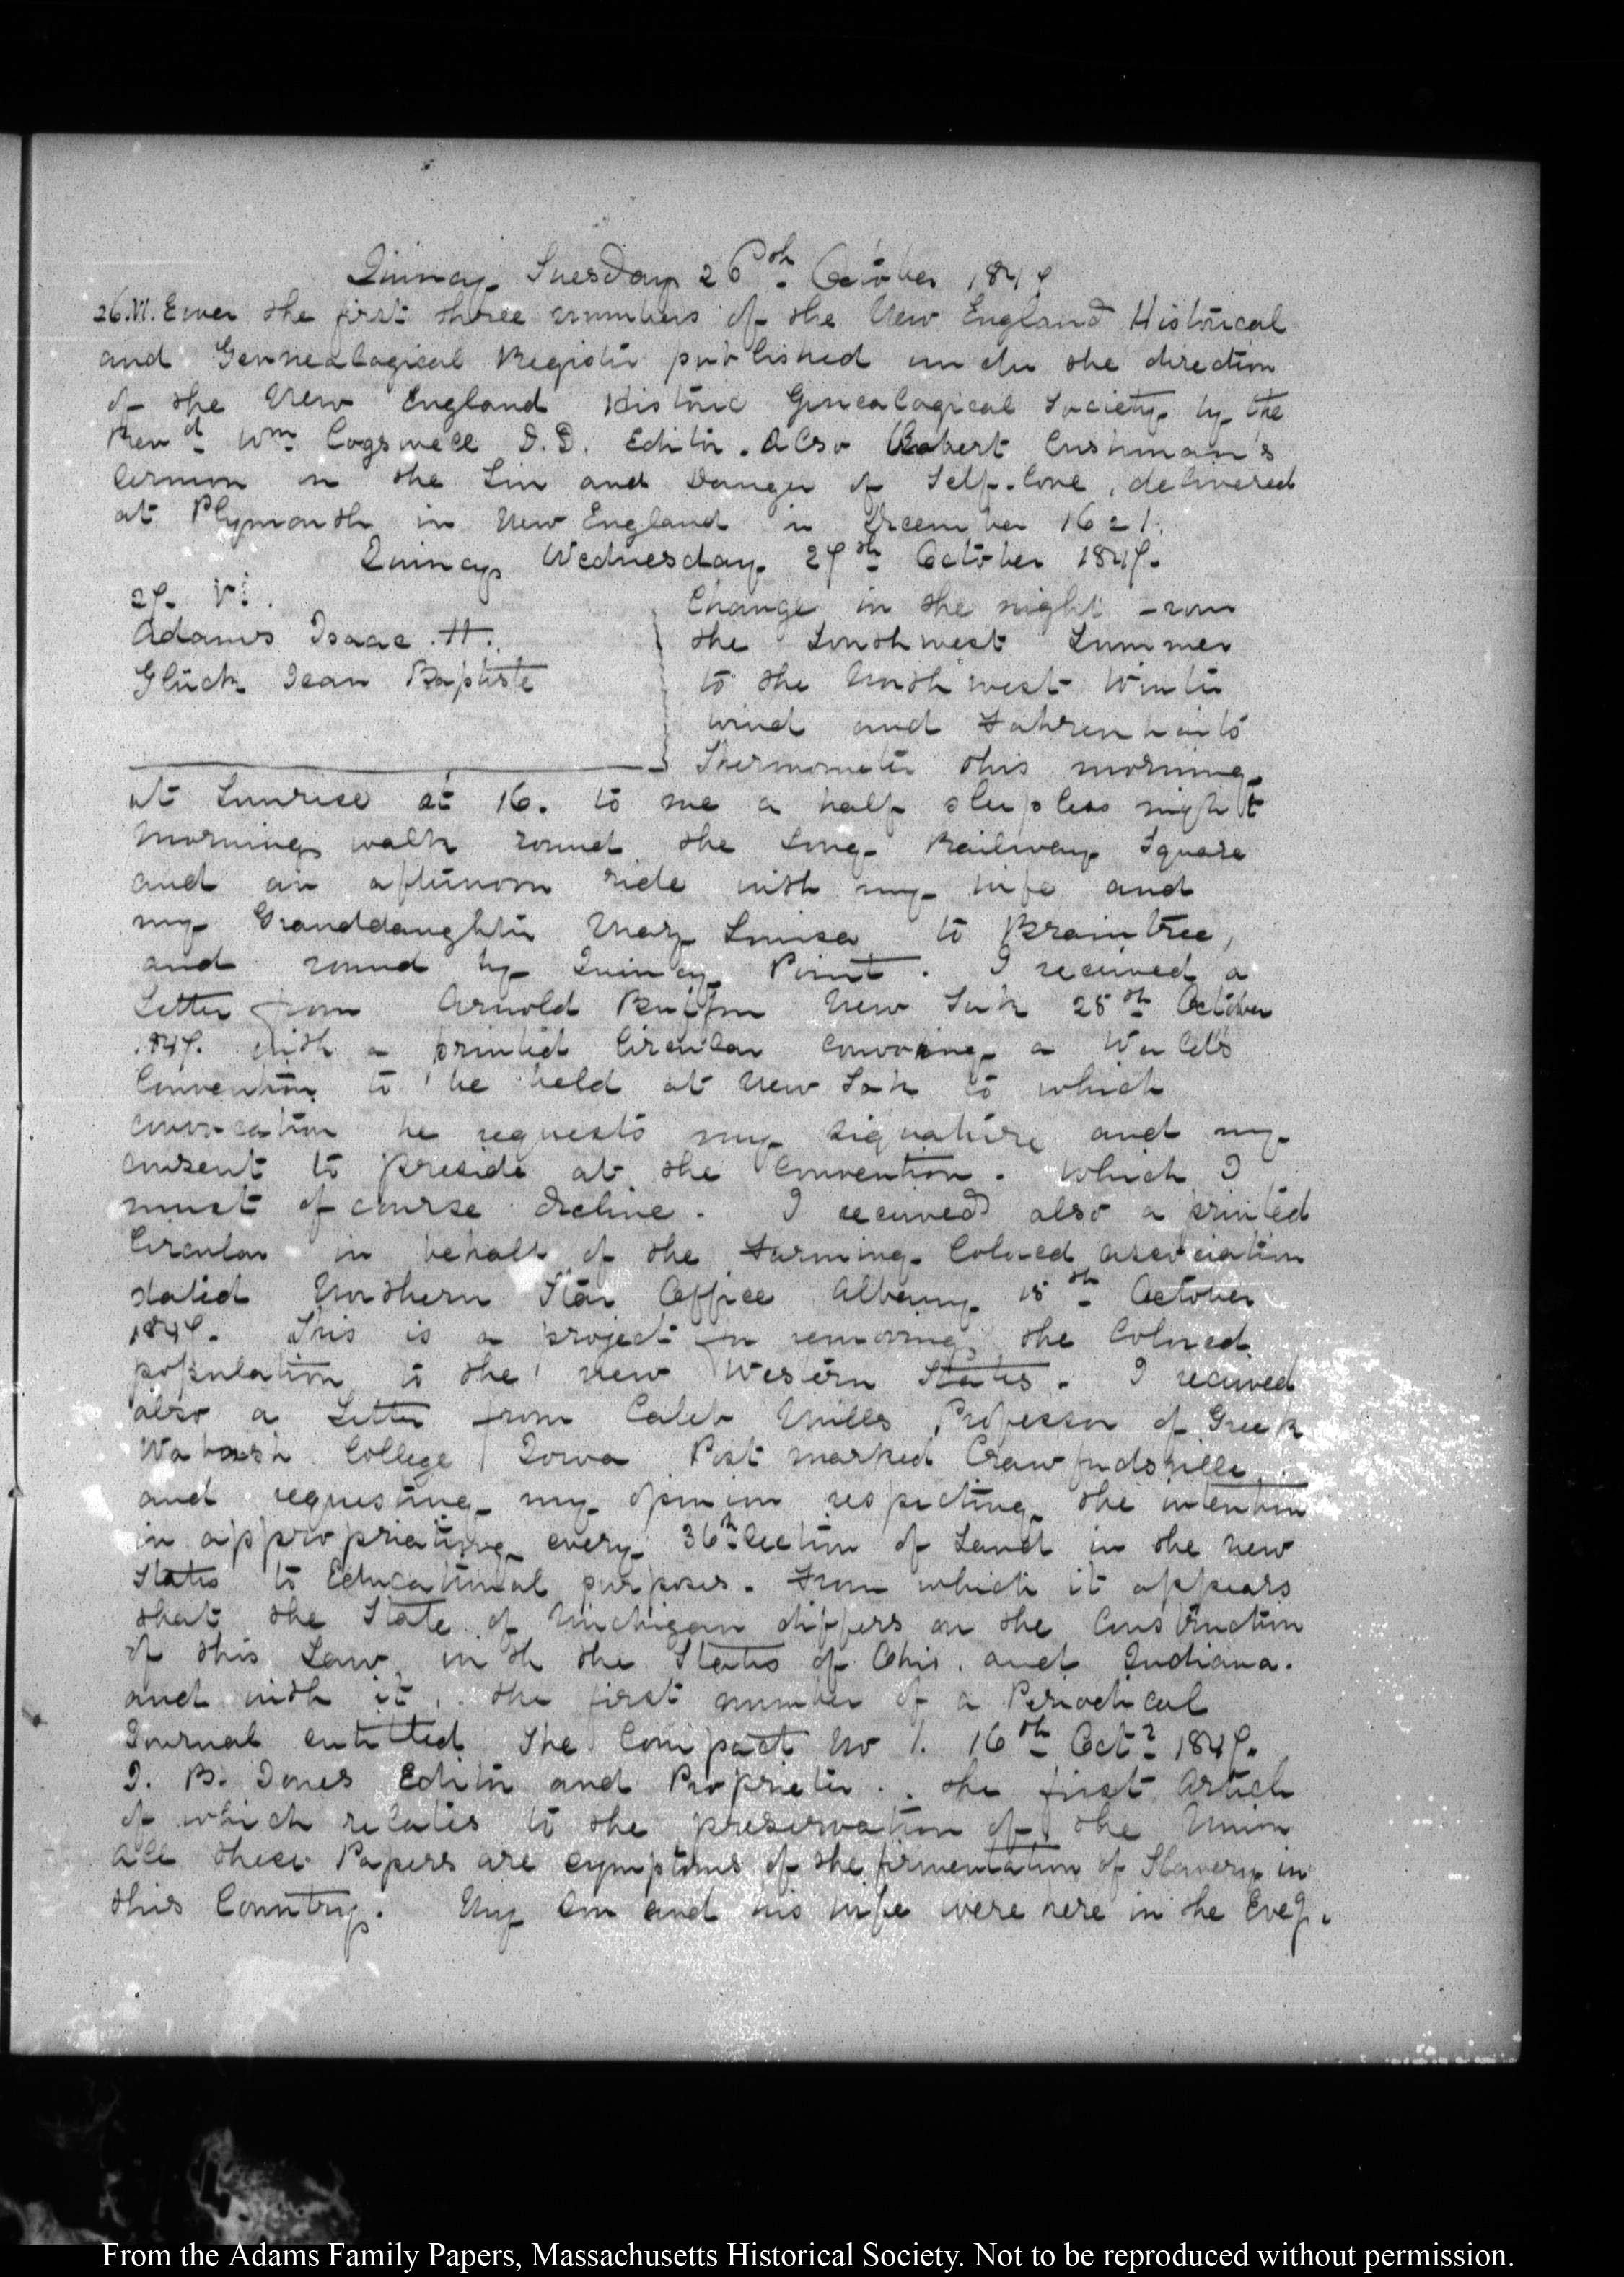 Quincy Tuesday 26th October 1847
26. VI. Ewer the first three numbers of the New England Historical
and Gennealogical Register published under the direction
of the New England Historic Genealogical Society by the
Revd Wm Cogswell D.D. Editor. Also Robert Cushman's
Sermon on the Sin and Danger of Self-love, delivered
at Plymouth in New England in December 1621.
Quincy Wednesday 27th October 1847.
27. VI.
Adams Isaac H.
Glück Jean Baptiste
Change in the night from
the Southwest Summer
to the Northwest Winter
wind and Fahrenheits
Thermometer this morning
at Sunrise at 16. to me a half sleepless night
Morning walk round the long Railway Square
and an afternoon ride with my wife and
my Granddaughter Mary Louisa to Braintree,
and round by Quincy Point. I received a
Letter from Arnold Buffum New York 25th October
1847. with a printed Circular convoking a World's
Convention to be held at New York to which
convocation he requests my signature and my
consent to preside at the Convention. Which I
must of course decline. I received also a printed
Circular in behalf of the Farming Colored association
dated Northern Star Office Albany 15th October
1847. This is a project for removing the Colored
population to the new Western States. I received
also a Letter from Caleb Mills, Professor of Greek
Wabash College Iowa Post marked Crawfordsville
and requesting my opinion respecting the intention
in appropriating every 36th Section of Land in the new
States to Educational purposes. From which it appears
that the State of Michigan differs on the Construction
of this Law with the States of Ohio and Indiana.
and with it, the first number of a Periodical
Journal entitled The Compact No 1. 16th Octr 1847.
J. B. Jones Editor and Proprietor. the first Article
of which relates to the preservation of the Union
All these Papers are symptoms of the fermentation of Slavery in
this Country. My Son and his wife were here in the Eveg.
From the Adams Family Papers, Massachusetts Historical Society. Not to be reproduced without permission.